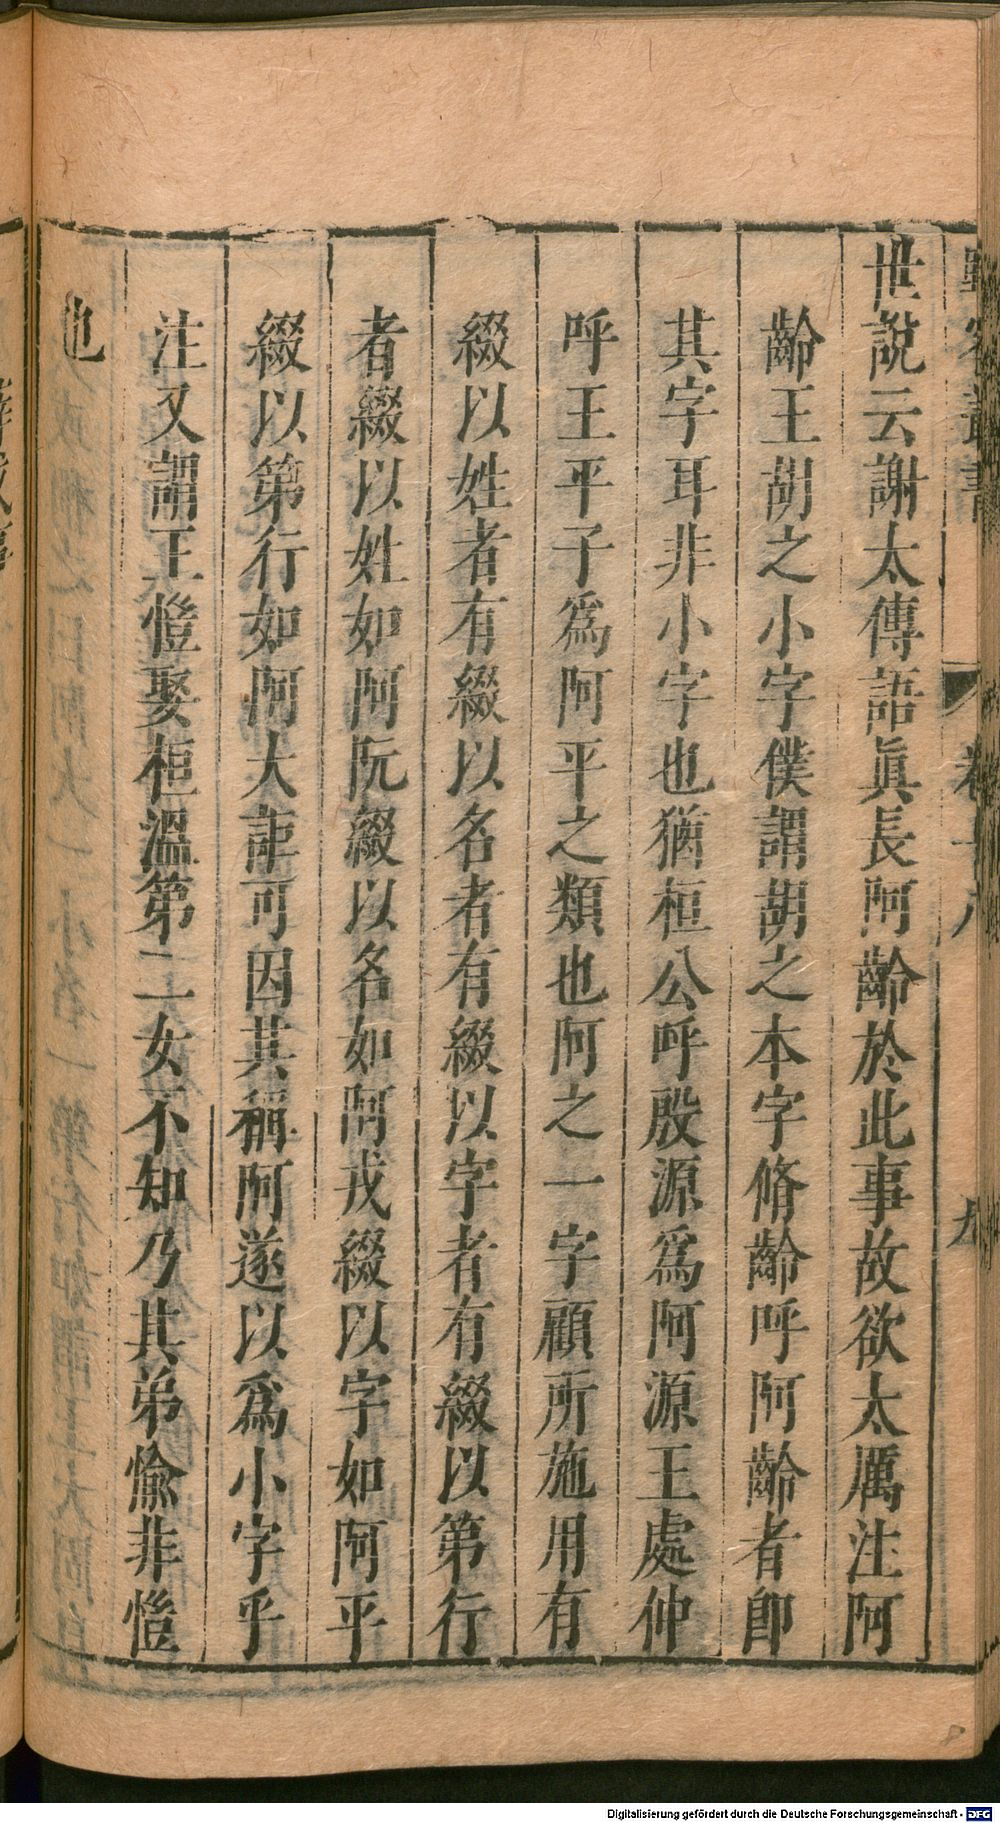 世說云謝太傅語眞長阿齡於此事故欲太厲注阿
齡王胡之小字僕謂胡之本字脩齡呼阿齡者卽
其字耳非小字也猶桓公呼殷源爲阿源王處仲
呼王平子爲阿平之類也阿之一字顧所施用有
綴以姓者有綴以名者有綴以字者有綴以第行
者綴以姓如阿阮綴以名如阿戎綴以字如阿平
綴以第行如阿大詎可因其稱阿遂以爲小字乎
注又謂王愷娶桓溫第二女不知乃其弟愉非愷
也
Digitalisierung gefördert durch die Deutsche Forschungsgemeinschaft - DFG